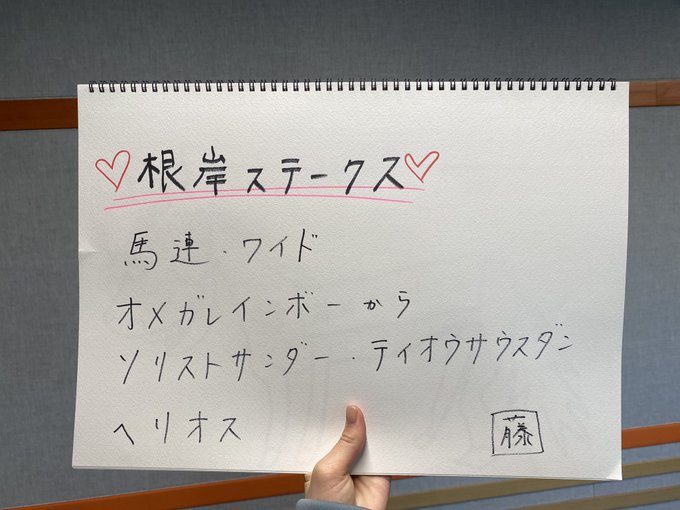 ♡根岸ステークス♡
馬連・ワイド
オメガレインボーから
ソリストサンダー・テイオウサウスダン
ヘリオス
藤